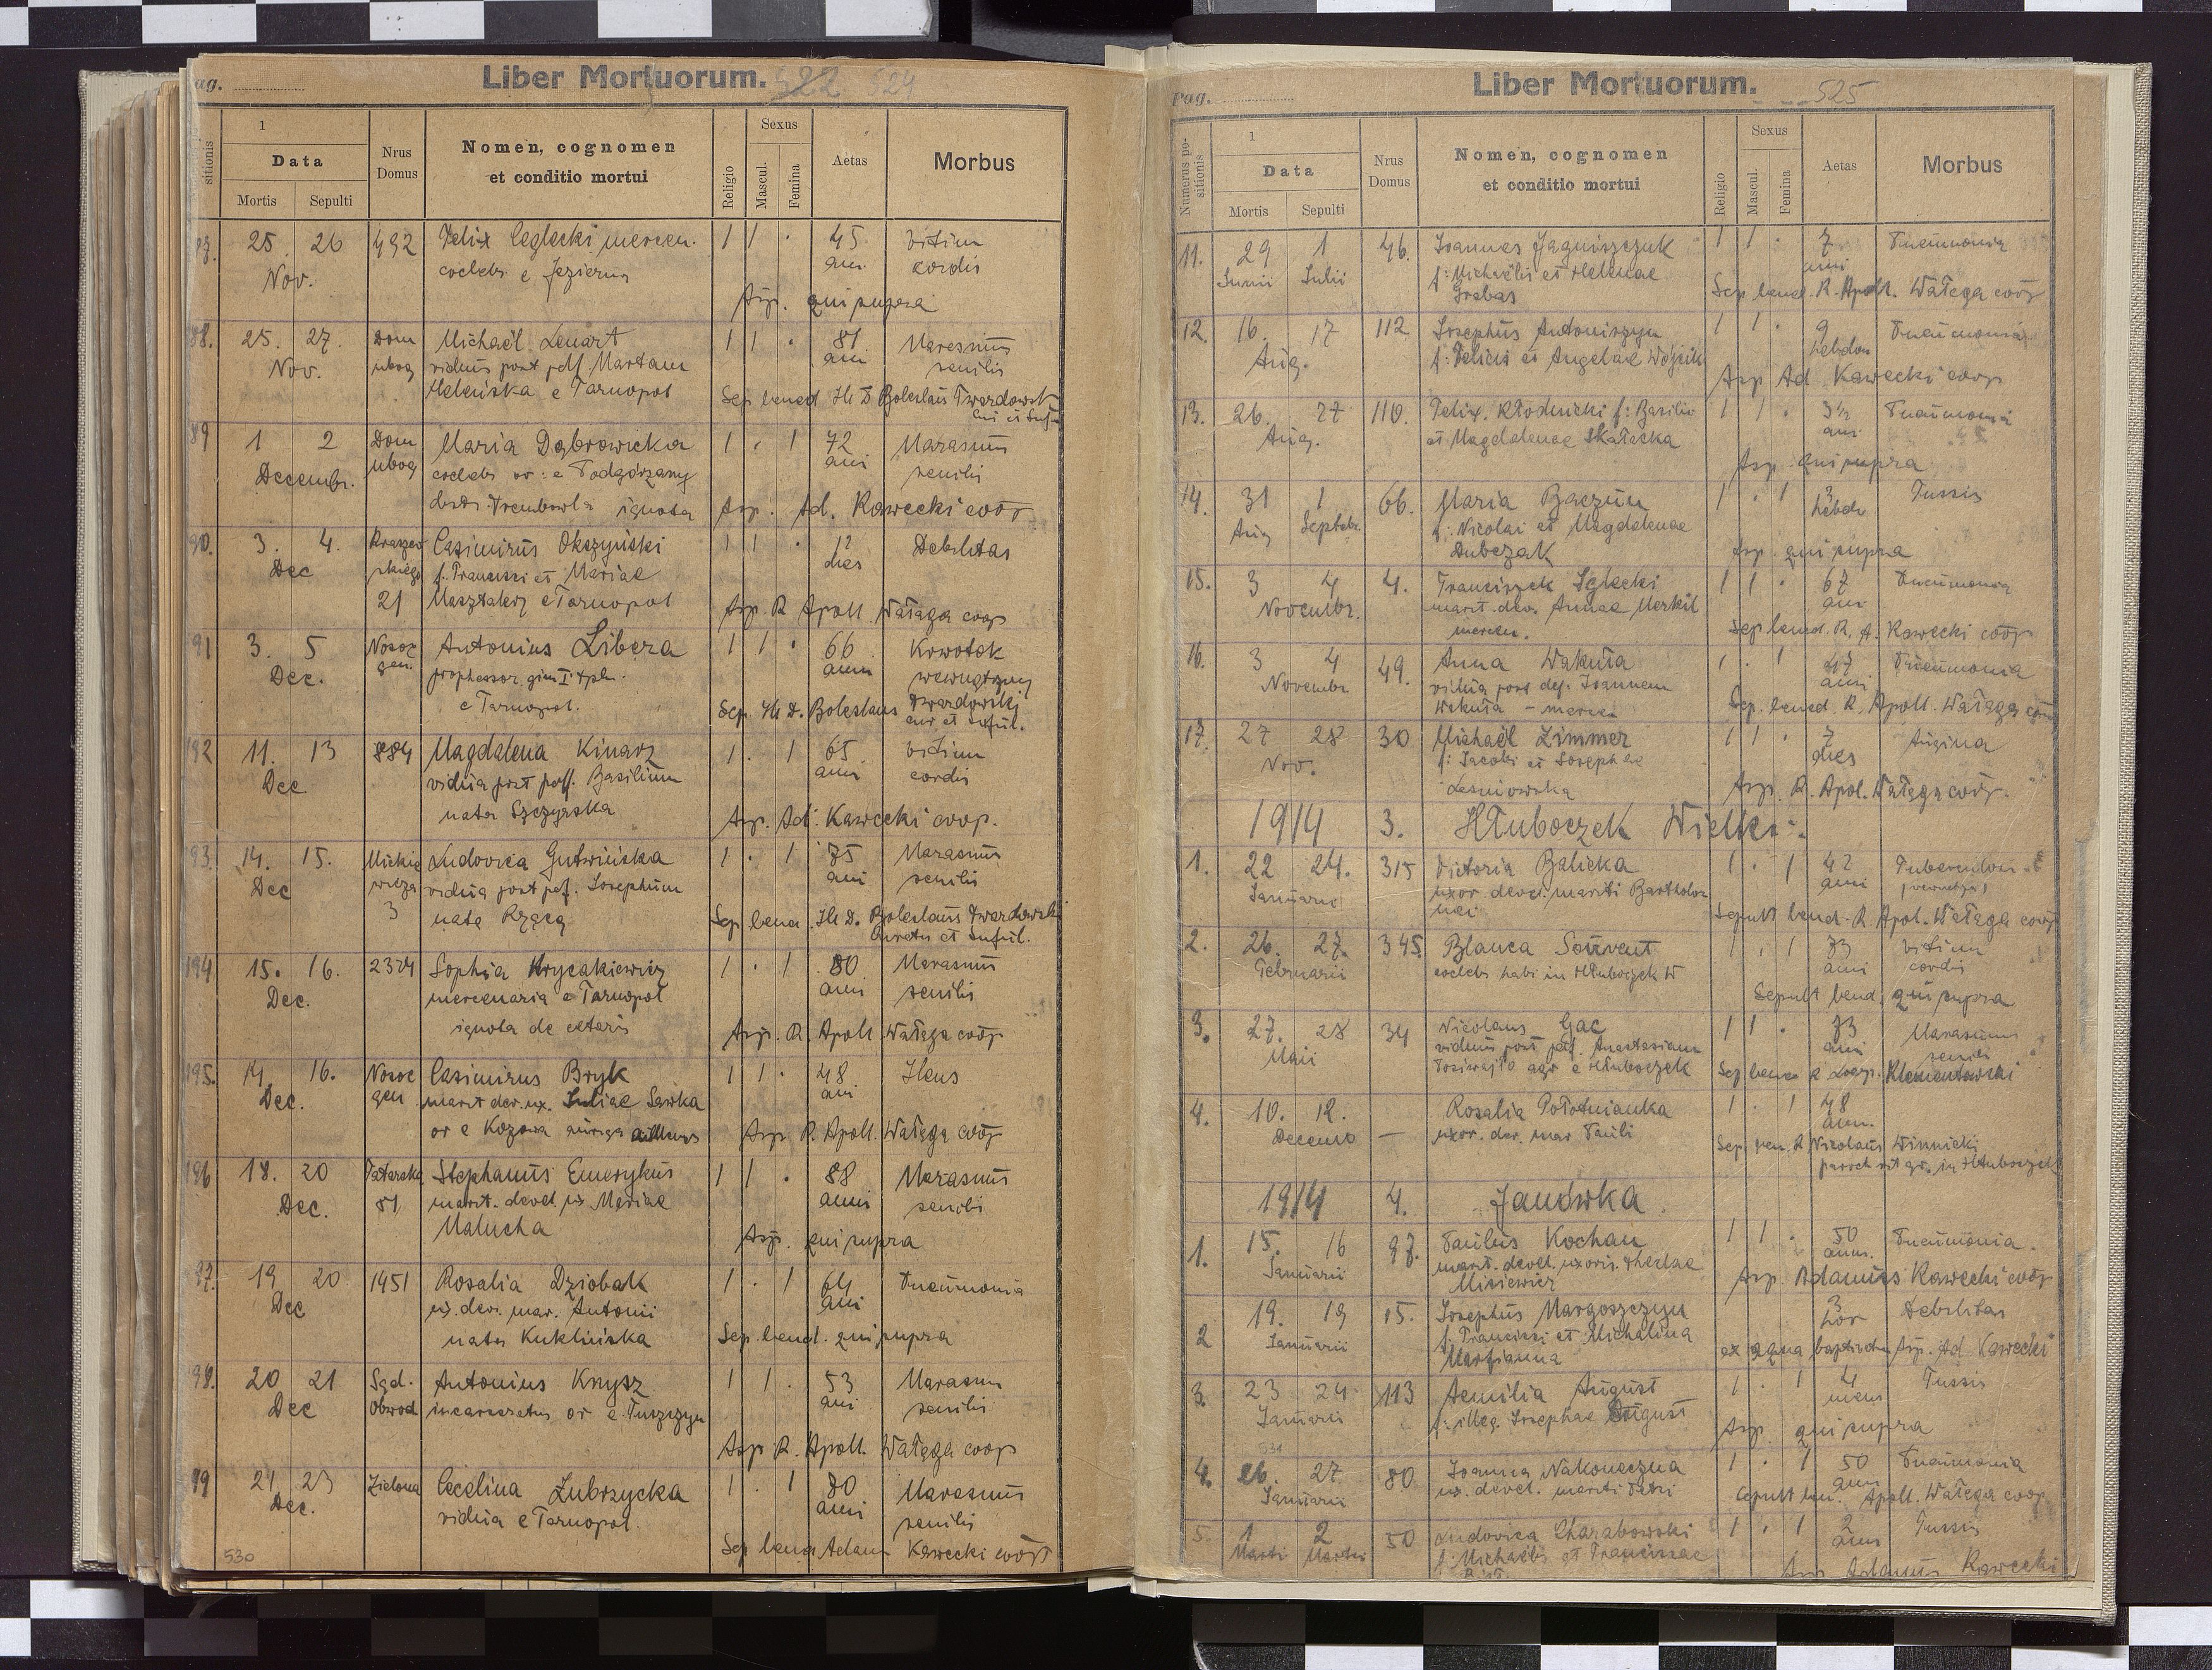 ag.
Liber Mortuorum. 522 524
sitionis
1
Data
Mortis Sepulti
Nrus Domus
Nomen, cognomen
et conditio mortui
Religio
Sexus
Mascul. Femina
Aetas
Morbus
25. 26 492 Felix Ceglecki mercen. 1 1 · 45 Vitium
Nov. coelebs e Jezierna ann. cordis
Asp. qui supra
88. 25. 27. Dom Michaël Lenart 1 1 · 81 Marasmus
Nov. ubog viduus post def Martam ann. senilis
e Tarnopol Sep bened Ill D Boleslaus Twardowski
89 1 2 Dom Maria Dąbrowicka 1 · 1 72 Marasmus
Decembr. ubog coelebs or: e Podgórzany ann senilis
Trembowla ignota Asp. Ad. Kawecki coop
90. 3. 4. Kraszew Casimirus Okszyński 1 1 · 12 Debilitas
Dec skiego f. Francisci et Mariae dies
21 e Tarnopol Asp. R Apoll. Wałęga coop
91 3. 5 Nosoc Antonius Libera 1 1 · 66 Krwotok
Dec. gen. prophessor gim I ann wewnętrzny
e Tarnopol. Sep. Ill D. Boleslaus Twardowski
192 11. 13 884 Magdalena Kinarz 1 · 1 65 Vitium
Dec vidua post Basilium ann cordis
nata Asp. Ad. Kawecki coop.
93. 14. 15. Mickie Ludovica Gutwińska 1 · 1 75 Marasmus
Dec wicza vidua post def. Josephum ann senilis
3 nata Rzącą Sep bened. Ill D. Boleslaus Twardowski
194 15. 16. 2324 Sophia Krycakiewicz 1 · 1 80 Marasmus
Dec. mercenaria e Tarnopol ann senilis
ignota de ceteris Asp. R. Apoll Wałęga coop
195. 14. 16. Nosoc Casimirus Bryk 1 1 · 48 Ileus
Dec. gen marit dev. ux. Juliae Sawka ann
or e Kozowa auriga Asp R. Apoll. Wałęga coop
196 18. 20 Tatarska Stephanus Emerykus 1 1 · 88 Marasmus
Dec. 51 marit. devel. ux Mariae anni senilis
Malucha Asp. qui supra
97. 19 20 1451 Rosalia Dziobak 1 · 1 64 Pneumonia
Dec ux. dev. mar. Antonii ann
nata Kuklińska Sep. bened. qui supra
98. 20 21 Sąd. Antonius Knysz 1 1 · 53 Marasm
Dec Obwod incarceratus or e ann senilis
Asp R. Apoll. Wałęga coop
99 21 23 Zielona Cecelina Zubrzycka 1 · 1 80 Marasmus
Dec. vidua e Tarnopol. ann senilis
530 Sep bened Adam Kawecki coop
Pag.
Liber Mortuorum. 525
Numerus positionis
1
Data
Mortis Sepulti
Nrus Domus
Nomen, cognomen
et conditio mortui
Religio
Sexus
Mascul. Femina
Aetas
Morbus
11. 29 1 46. Joannes Jaguiszczuk 1 1 · 7 Pneumonia
Junii Julii f: Michaëlis et Helenae anni
Grabas Sep bened. R. Apoll. Wałęga coop
12. 16. 17 112 Josephus Antoniszyn 1 1 · 9 Pneumonia
Aug. f: Felicis et Angelae Wójcik hebdom
Asp Ad Kawecki coop
13. 26. 27 110. Felix Kłodnicki f: Basilio 1 1 · 3½ Pneumonia
Aug. et Magdalenae Skałacka ann
Asp qui supra
14. 31 1 66. Maria Baczun 1 · 1 3 Tussis
Aug Septebr. f: Nicolai et Magdalenae hebd
Dubczak Asp. qui supra
15. 3 4 4. Franciszek Ceglecki 1 1 · 67 Pneumonia
Novembr. marit. dev. Annae Merkil ann
mercen. Sep bened. R. A. Kawecki coop
16. 3 4 49. Anna Wakuła 1 · 1 47 Pneumonia
Novembr vidua post def. Joannem anni
Wakuła - mercen Sep. bened. R. Apoll. Wałęga coop
17. 27 28 30 Michaël Zimmer 1 1 · 7 Angina
Nov. f: Jacobi et Josephae dies
Lesniowska Asp. R. Apol. Wałęga coop.
1914 3. Hłuboczek Wielki.
1. 22 24. 315 Victoria Balicka 1 · 1 42 Tuberculosi
Januarii uxor devel. mariti Bartholo anni
mei Sepult bened. R. Apol. Wałęga coop
2. 26. 27. 345 Blanca Souvent 1 · 1 73 Vitium
Februarii coelebs habi in Hłuboczek W anni cordis
Sepult bend. qui supra
3. 27. 28 34 Nicolaus Gac 1 1 · 73 Marasmus
Maii viduus post def. Anastasiam ann senilis
agr e Hłuboczek Sep bened R Klementowski
4. 10. 12. Rosalia Połotnianka 1 · 1 48
Decemb — uxor. dev. mar Pauli ann.
Sep. ben. R Nicolaus Winnicki
paroch rit gr. in Hłuboczek
1914 4. Janówka
1. 15. 16 97. Paulus Kochan 1 1 · 50 Pneumonia.
Januarii marit. devel. uxoris Theclae anns.
Misiewicz Asp Adamus Kawecki coop
2 19. 19 15. Josephus Margoszczyn 3 Debilitas
Januarii f. Francisci et Michalina hor
Marzianna ex aqua baptisatus Asp. Ad Kawecki
3. 23 24 113 Aemilia August 1 · 1 4 Tussis
Januarii f: illeg. Josephae August mens
Asp. qui supra
4. 26. 27. 80 Joanna Nakoneczna 1 · 1 50 Pneumonia
Januarii ux. devel. mariti Petri ann
Sepult ben. Apoll. Wałęga coop
5. 1 2 50 Ludovica Charabowski 1 · 1 2 Tussis
Marti Martii f: Michaëlis et Franciscae ann
Asp Adamus Kawecki